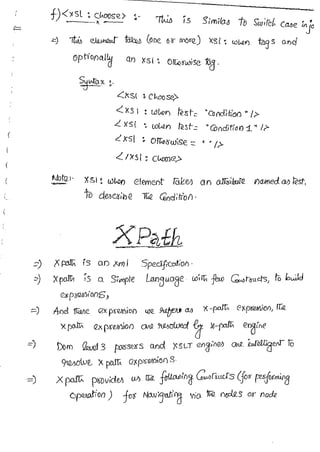 f) <xsl : choose> :- This is Similar to Switch case in Ja
=) This element takes (one or more) xsl : when tags and
optionally an xsl : otherwise tag.
Syntax :-
<xsl : choose>
<xsl : when test= "Condition" />
<xsl : when test= "Condition 1" />
<xsl : otherwise = " " />
</xsl : choose>
Note:- xsl : when element takes an attribute named as test,
to describe The Condition.
XPath
=) Xpath is an xml Specification.
=) Xpath is a Simple Language with few Constructs, to build
expressions,
=) And these expression we Refers as X-path expression, the
xpath expression are resolved by x-path engine
=) Dom level 3 parsers and XSLT engines are intelligent to
resolve xpath expressions.
=) Xpath provides us the following Constructs (for performing
operation) for Navigating via the nodes or node